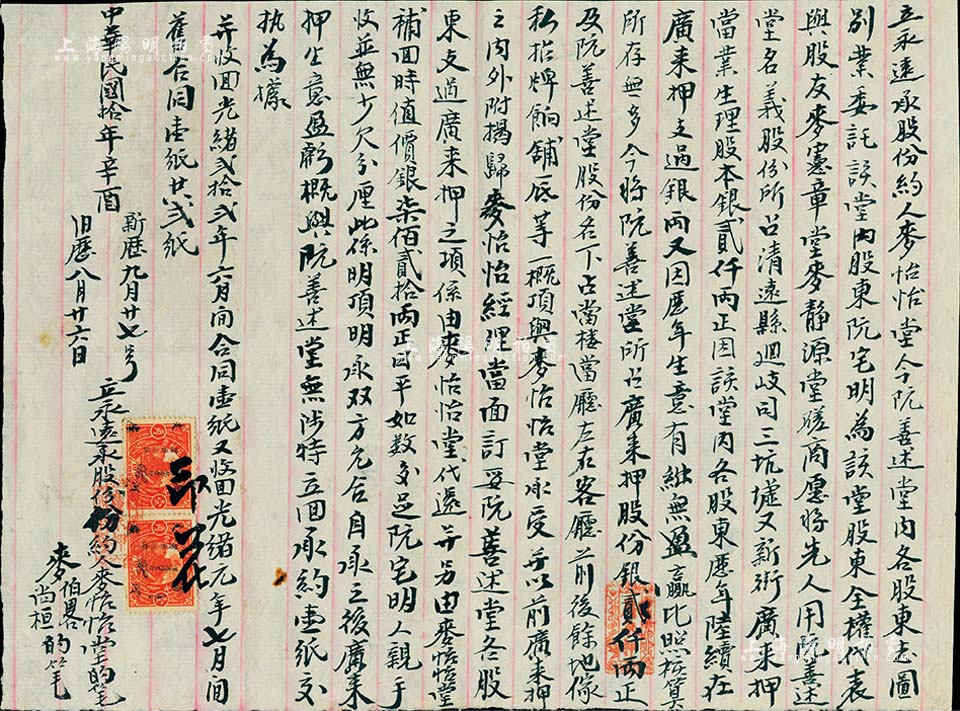 立永遠承股份約人麥怡怡堂今阮善述堂內各股東志圖
別業委託該堂內股東阮宅明為該堂股東全權代表
與股友麥憲章堂麥靜源堂磋商愿將先人用善述
堂名義股份所占清遠縣迴岐司三坑墟又新街廣来押
當業生理股本銀貳仟兩正因該堂內各股東歷年陸續在
廣来押支過銀兩又因歷年生意有絀無盈贏比照核算
所存無多今將阮善述堂所占廣来押股份銀貳仟兩正
及阮善述堂股份名下占當樓當廳左右客廳前後餘地傢
私招牌餉舖底等一概頂與麥怡怡堂承受並以前廣来押
之內外附揭歸麥怡怡經理當面訂妥阮善述堂各股
東支過廣来押之項係由麥怡怡堂代還并另由麥怡怡堂
補回時值價銀柒佰貳拾兩正司平如數交足阮宅明人親手
收並無少欠分厘此係明頂明承双方允合自承之後廣来
押生意盈虧概與阮善述堂無涉特立回承約壹紙交
执為據
并收回光緒貳拾弍年六月間合同壹紙又收回光緒元年七月間
舊合同壹紙共弍紙
中華民國拾年辛酉
新歷九月廿七号
旧歷八月廿六日
立永遠承股份約人麥怡怡堂的笔
麥伯畧
尚桓
的笔
印花
上海陽明拍賣
www.yangmingauction.com